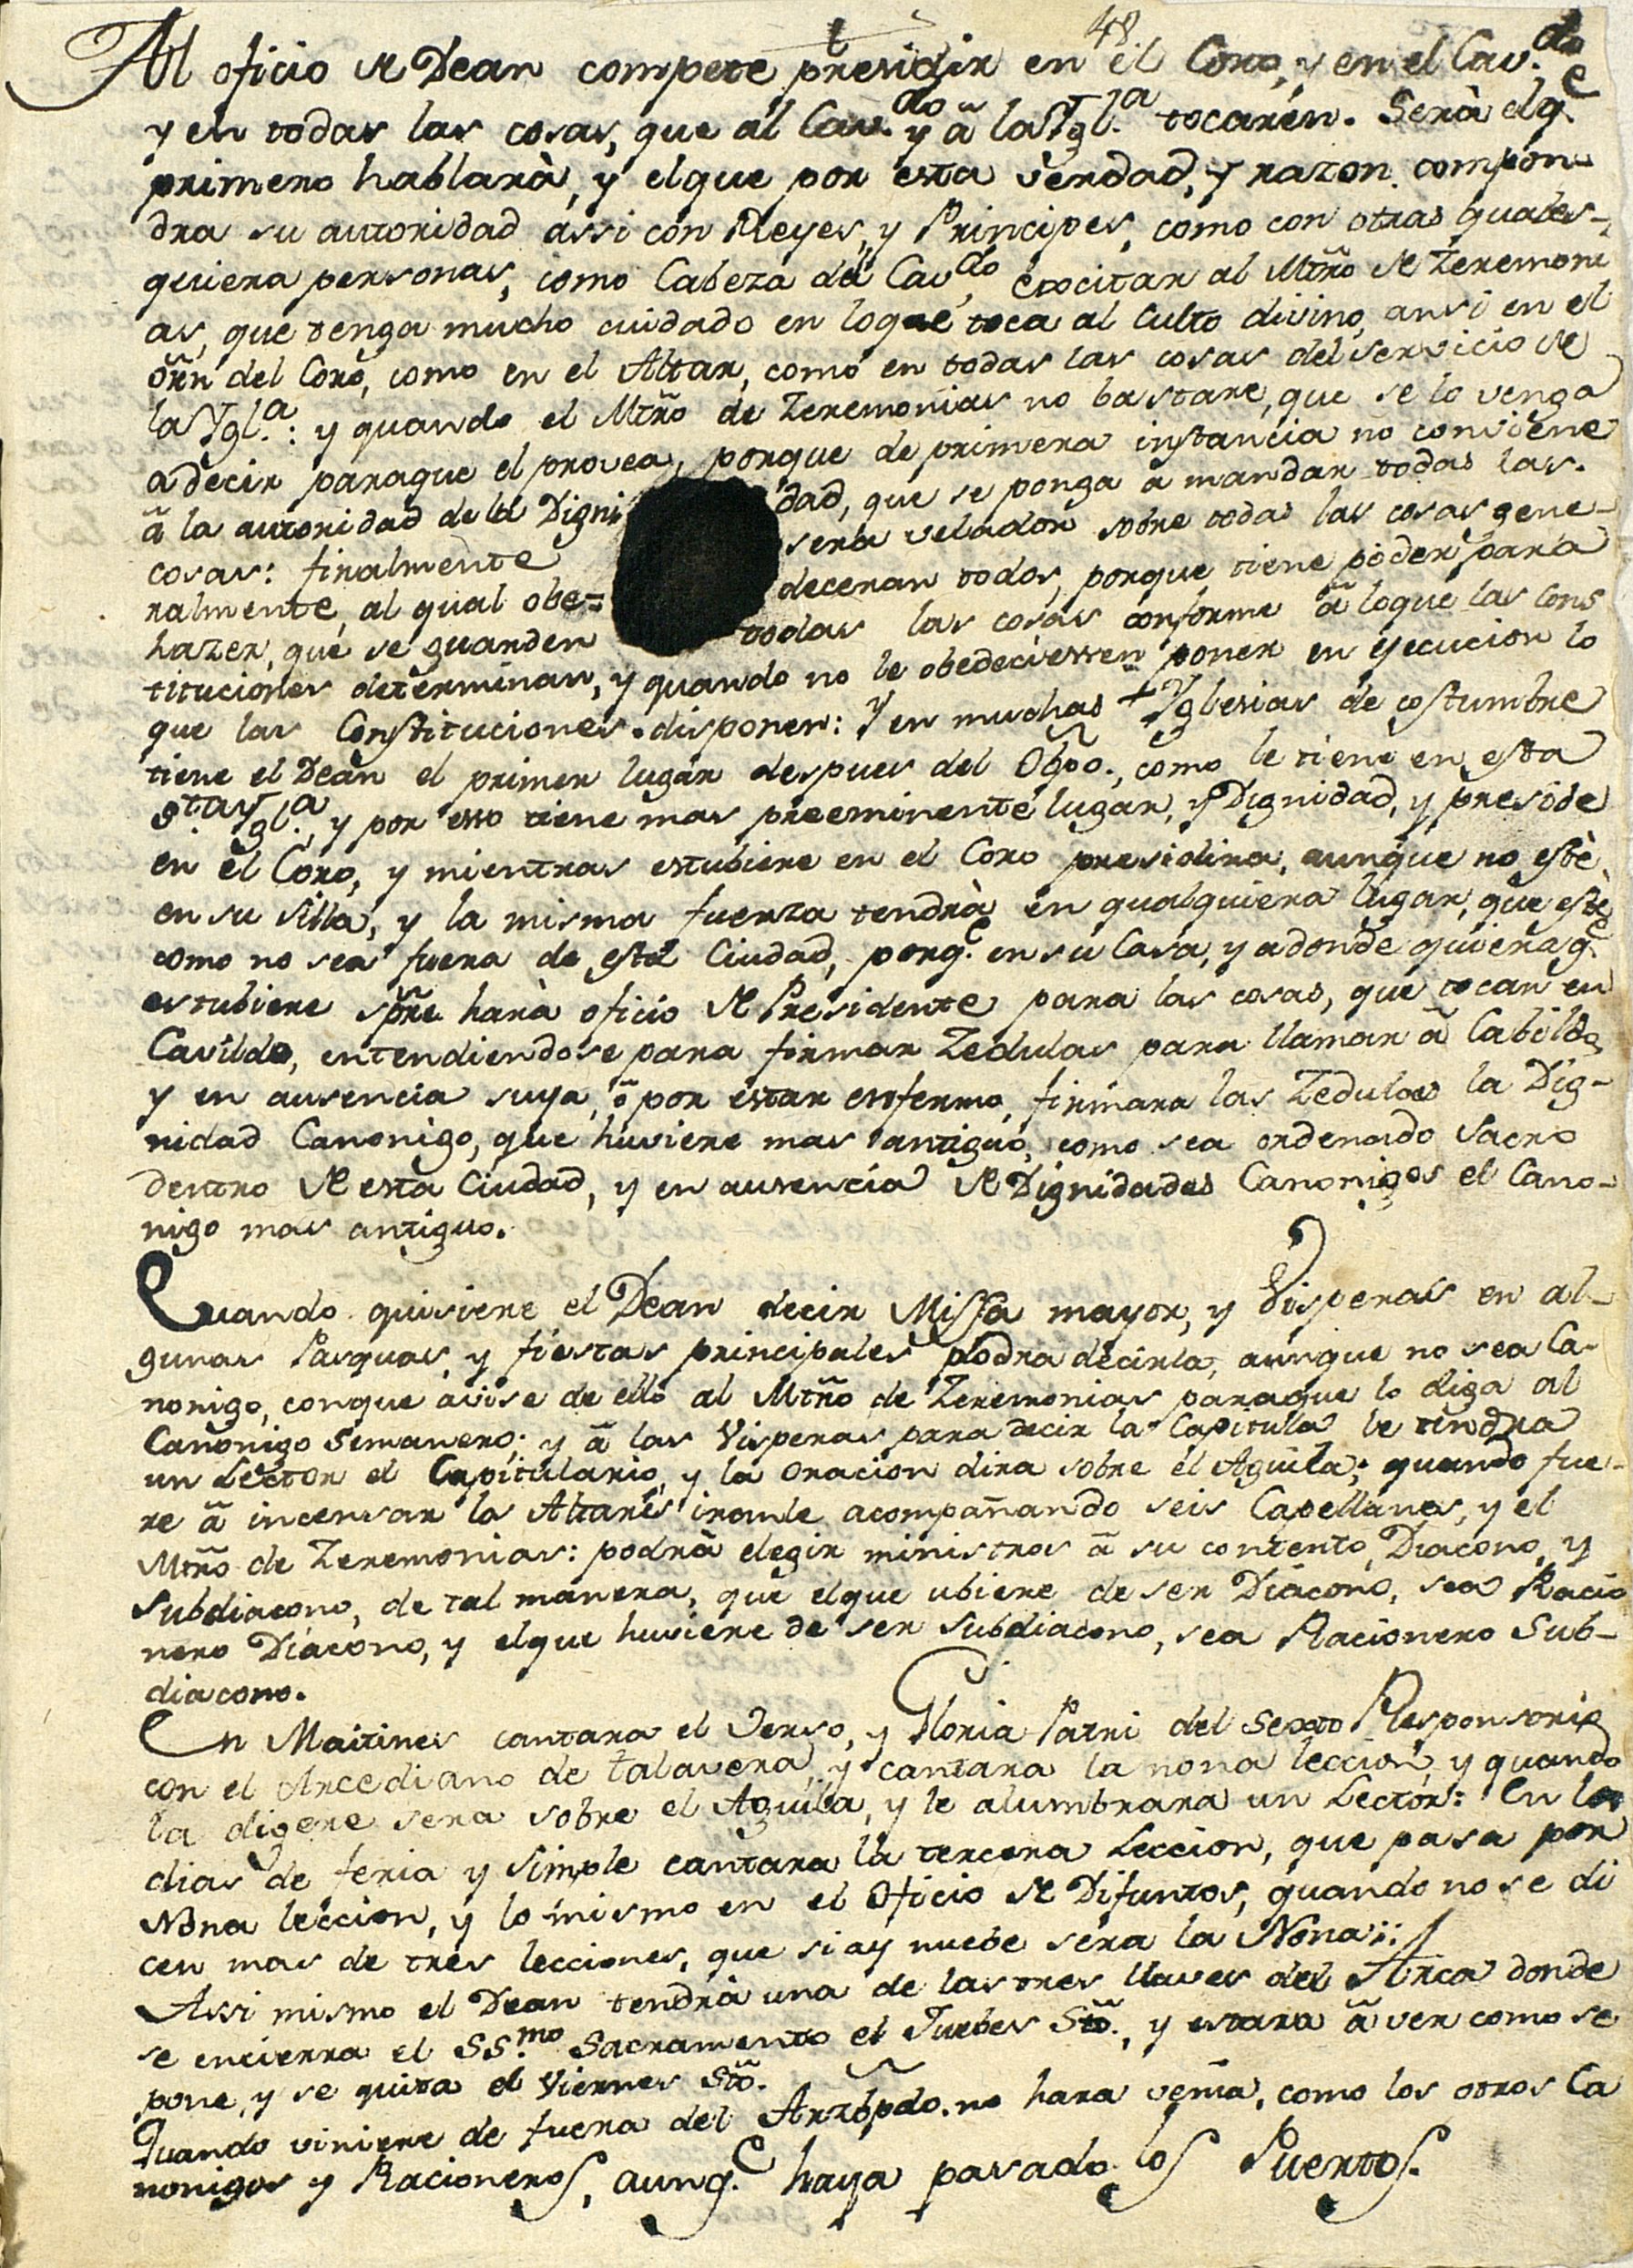 48
Al oficio de Dean compete presidir en el Coro, y en el Cav.do
y en todas las cosas, que al Cav.do y â la Igl.a tocarèn. Serà el q.e
primero hablarà, y elque por esta verdad, y razon compon-
dra su autoridad assi con Reyes, y Principes, como con otras quales-
quiera personas, como Cabeza del Cav.do è cocitar al Mtr̃o de Zeremoni
as, que tenga mucho cuidado en loque toca al Culto divino, ansi en el
or̃n del Coro, como en el Altar, como en todas las cosas del servicio de
la Igl.a: y quando el Mtr̃o de Zeremonias no bastare, que se lo venga
adecir paraque el provea, porque de primera instancia no conviene
â la autoridad de la Digni dad, que se ponga â mandar todas las
cosas: finalmente sera velador sobre todas las cosas gene-
ralmente, al qual obe= deceran todos, porque tiene poder para
hazer, que se guarden todas las cosas conforme â loque las Cons
tituciones determinan, y quando no le obedeciessen poner en ejecucion lo
que las Constituciones disponen: Y en muchas Yglesias de costumbre
tiene el Dean el primer lugar despues del Obp̃o., como le tiene en esta
S.ta Igl.a, y por esso tiene mas preeminente lugar, y Dignidad, y preside
en el Coro, y mientras estubiere en el Coro presidira, aunque no estè
en su silla, y la misma fuerza tendrà en qualquiera lugar, que estè
como no sea fuera de esta Ciudad, porq.e en su Casa, y adonde quiera q.e
estubiere sp̃re harà oficio de Presidente para las cosas, que tocan en
Cavildo, entendiendose para firmar Zedulas para llamar â Cabildo,
y en ausencia suya, ô por estar enfermo, firmara las Zedulas la Dig-
nidad Canonigo, que huviere mas antiguo, como sea ordenado Sacro
dentro de esta Ciudad, y en ausencia de Dignidades Canonigos el Cano-
nigo mas antiguo.
Quando quisiere el Dean decir Missa mayor, y Visperas en al-
gunas Pasquas, y fiestas principales podra decirla, aunque no sea Ca-
nonigo, conque avise de ello al Mtr̃o de Zeremonias paraque lo diga al
Canonigo Semanero; y â las Visperas para decir la Capitula le tendra
un Lector el Capitulario, y la oracion dira sobre el Aguila; quando fue-
re â incensar los Altares iranle acompañando seis Capellanes, y el
Mtr̃o de Zeremonias: podrà elegir ministros â su contento, Diacono, y
subdiacono, de tal manera, que elque ubiere de ser Diacono, sea Racio
nero Diacono, y elque huviere de ser subdiacono, sea Racionero Sub-
diacono.
En Maitines cantara el Verso, y Gloria Patri del Sexto Responsorio
con el Arcediano de Talavera, y cantara la nona leccion, y quando
la digere sera sobre el Aguila, y le alumbrara un Lector: En los
dias de feria y simple cantara la tercera Leccion, que pasa por
Nona leccion, y lo mismo en el Oficio de Difuntos, quando no se di
cen mas de tres lecciones, que si ay nuebe sera la Nona:
Assi mismo el Dean tendrà una de las tres llaves del Arca donde
se encierra el SS.mo Sacramento el Juebes Stõ., y estara â ver como se
pone, y se quita el Viernes Stõ.
Quando viniere de fuera del Arzobp̃do. no hara venia, como los otros Ca
nonigos y Racioneros, aunq.e haya pasado los Puertos.